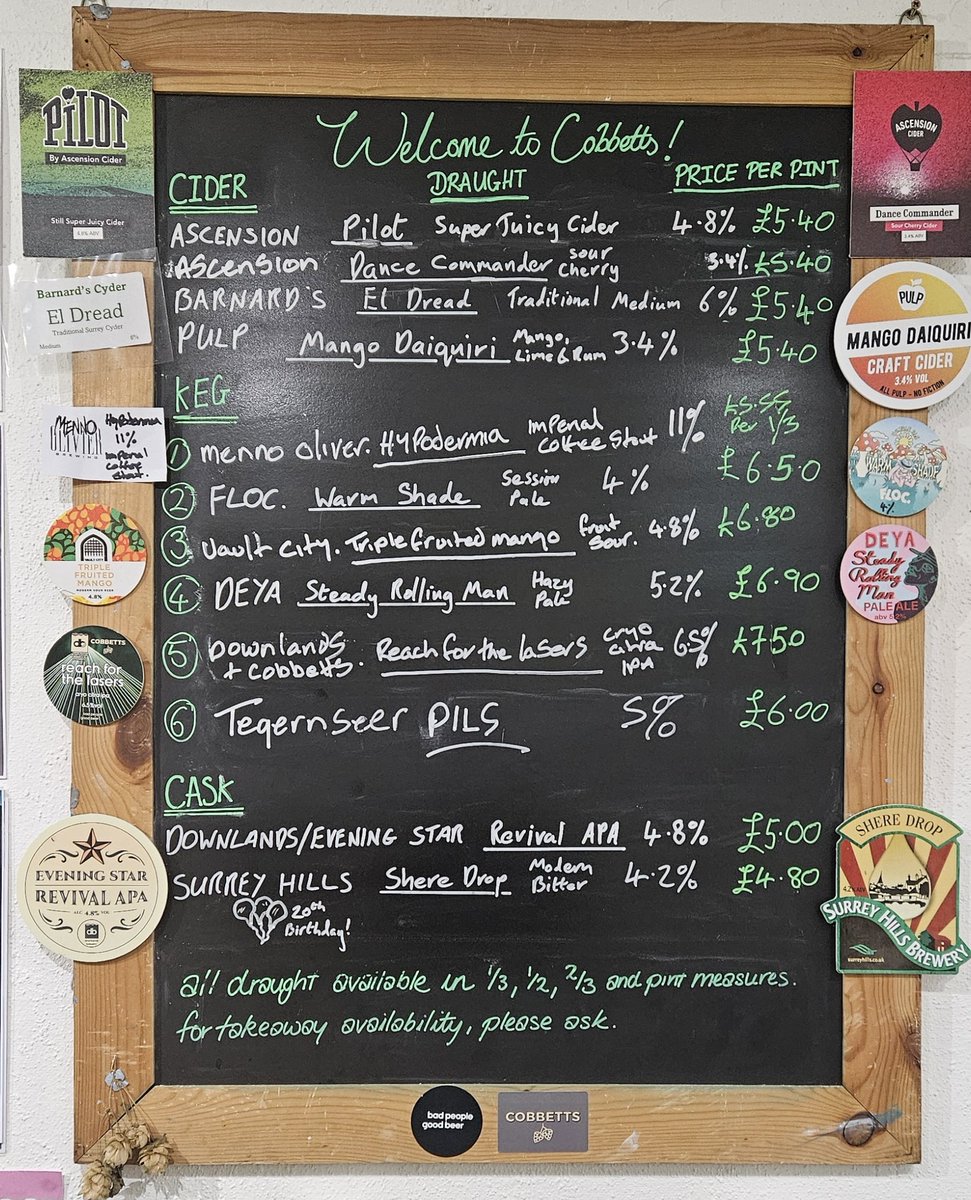 Welcome to Cobbetts!
CIDER DRAUGHT PRICE PER PINT
ASCENSION Pilot Super Juicy Cider 4.8% £5.40
ASCENSION Dance Commander sour cherry 3.4% £5.40
BARNARD'S El Dread Traditional Medium 6% £5.40
PULP Mango Daiquiri Mango, Lime & Rum 3.4% £5.40
KEG
1 menno oliver. HYPodermia imperial Coffee Stout 11% £5.55 Per 1/3
2 FLOC. Warm Shade Session Pale 4% £6.50
3 Vault City. Triple fruited mango fruit sour. 4.8% £6.80
4 DEYA Steady Rolling Man Hazy Pale 5.2% £6.90
5 Downlands + Cobbetts. Reach for the lasers cryo citra IPA 6.5% £7.50
6 Tegernseer PILS 5% £6.00
CASK
DOWNLANDS/EVENING STAR Revival APA 4.8% £5.00
SURREY HILLS Shere Drop Modern Bitter 4.2% £4.80
20th Birthday!
all draught available in 1/3, 1/2, 2/3 and pint measures.
for takeaway availability, please ask.
PILOT
By Ascension Cider
Still Super Juicy Cider
4.8% ABV
Barnard's Cyder
El Dread
Traditional Surrey Cyder
Medium 6%
MENNO OLIVIER BREWING
Hypodermia
11%
imperial
Coffee
Stout.
TRIPLE
FRUITED
MANGO
MODERN SOUR BEER
4.8%
COBBETTS
reach for
the lasers
cryo citra ipa
EVENING STAR
REVIVAL APA
ALC 4.8% VOL
ASCENSION
CIDER
Dance Commander
Sour Cherry Cider
3.4% ABV
PULP
MANGO DAIQUIRI
CRAFT CIDER
3.4% VOL
ALL PULP - NO FICTION
WARM SHADE
FLOC
4%
DEYA
Steady
Rolling
Man
PALE ALE
SHERE DROP
4.2% ABV
SURREY HILLS BREWERY
surreyhills.co.uk
bad people
good beer
COBBETTS